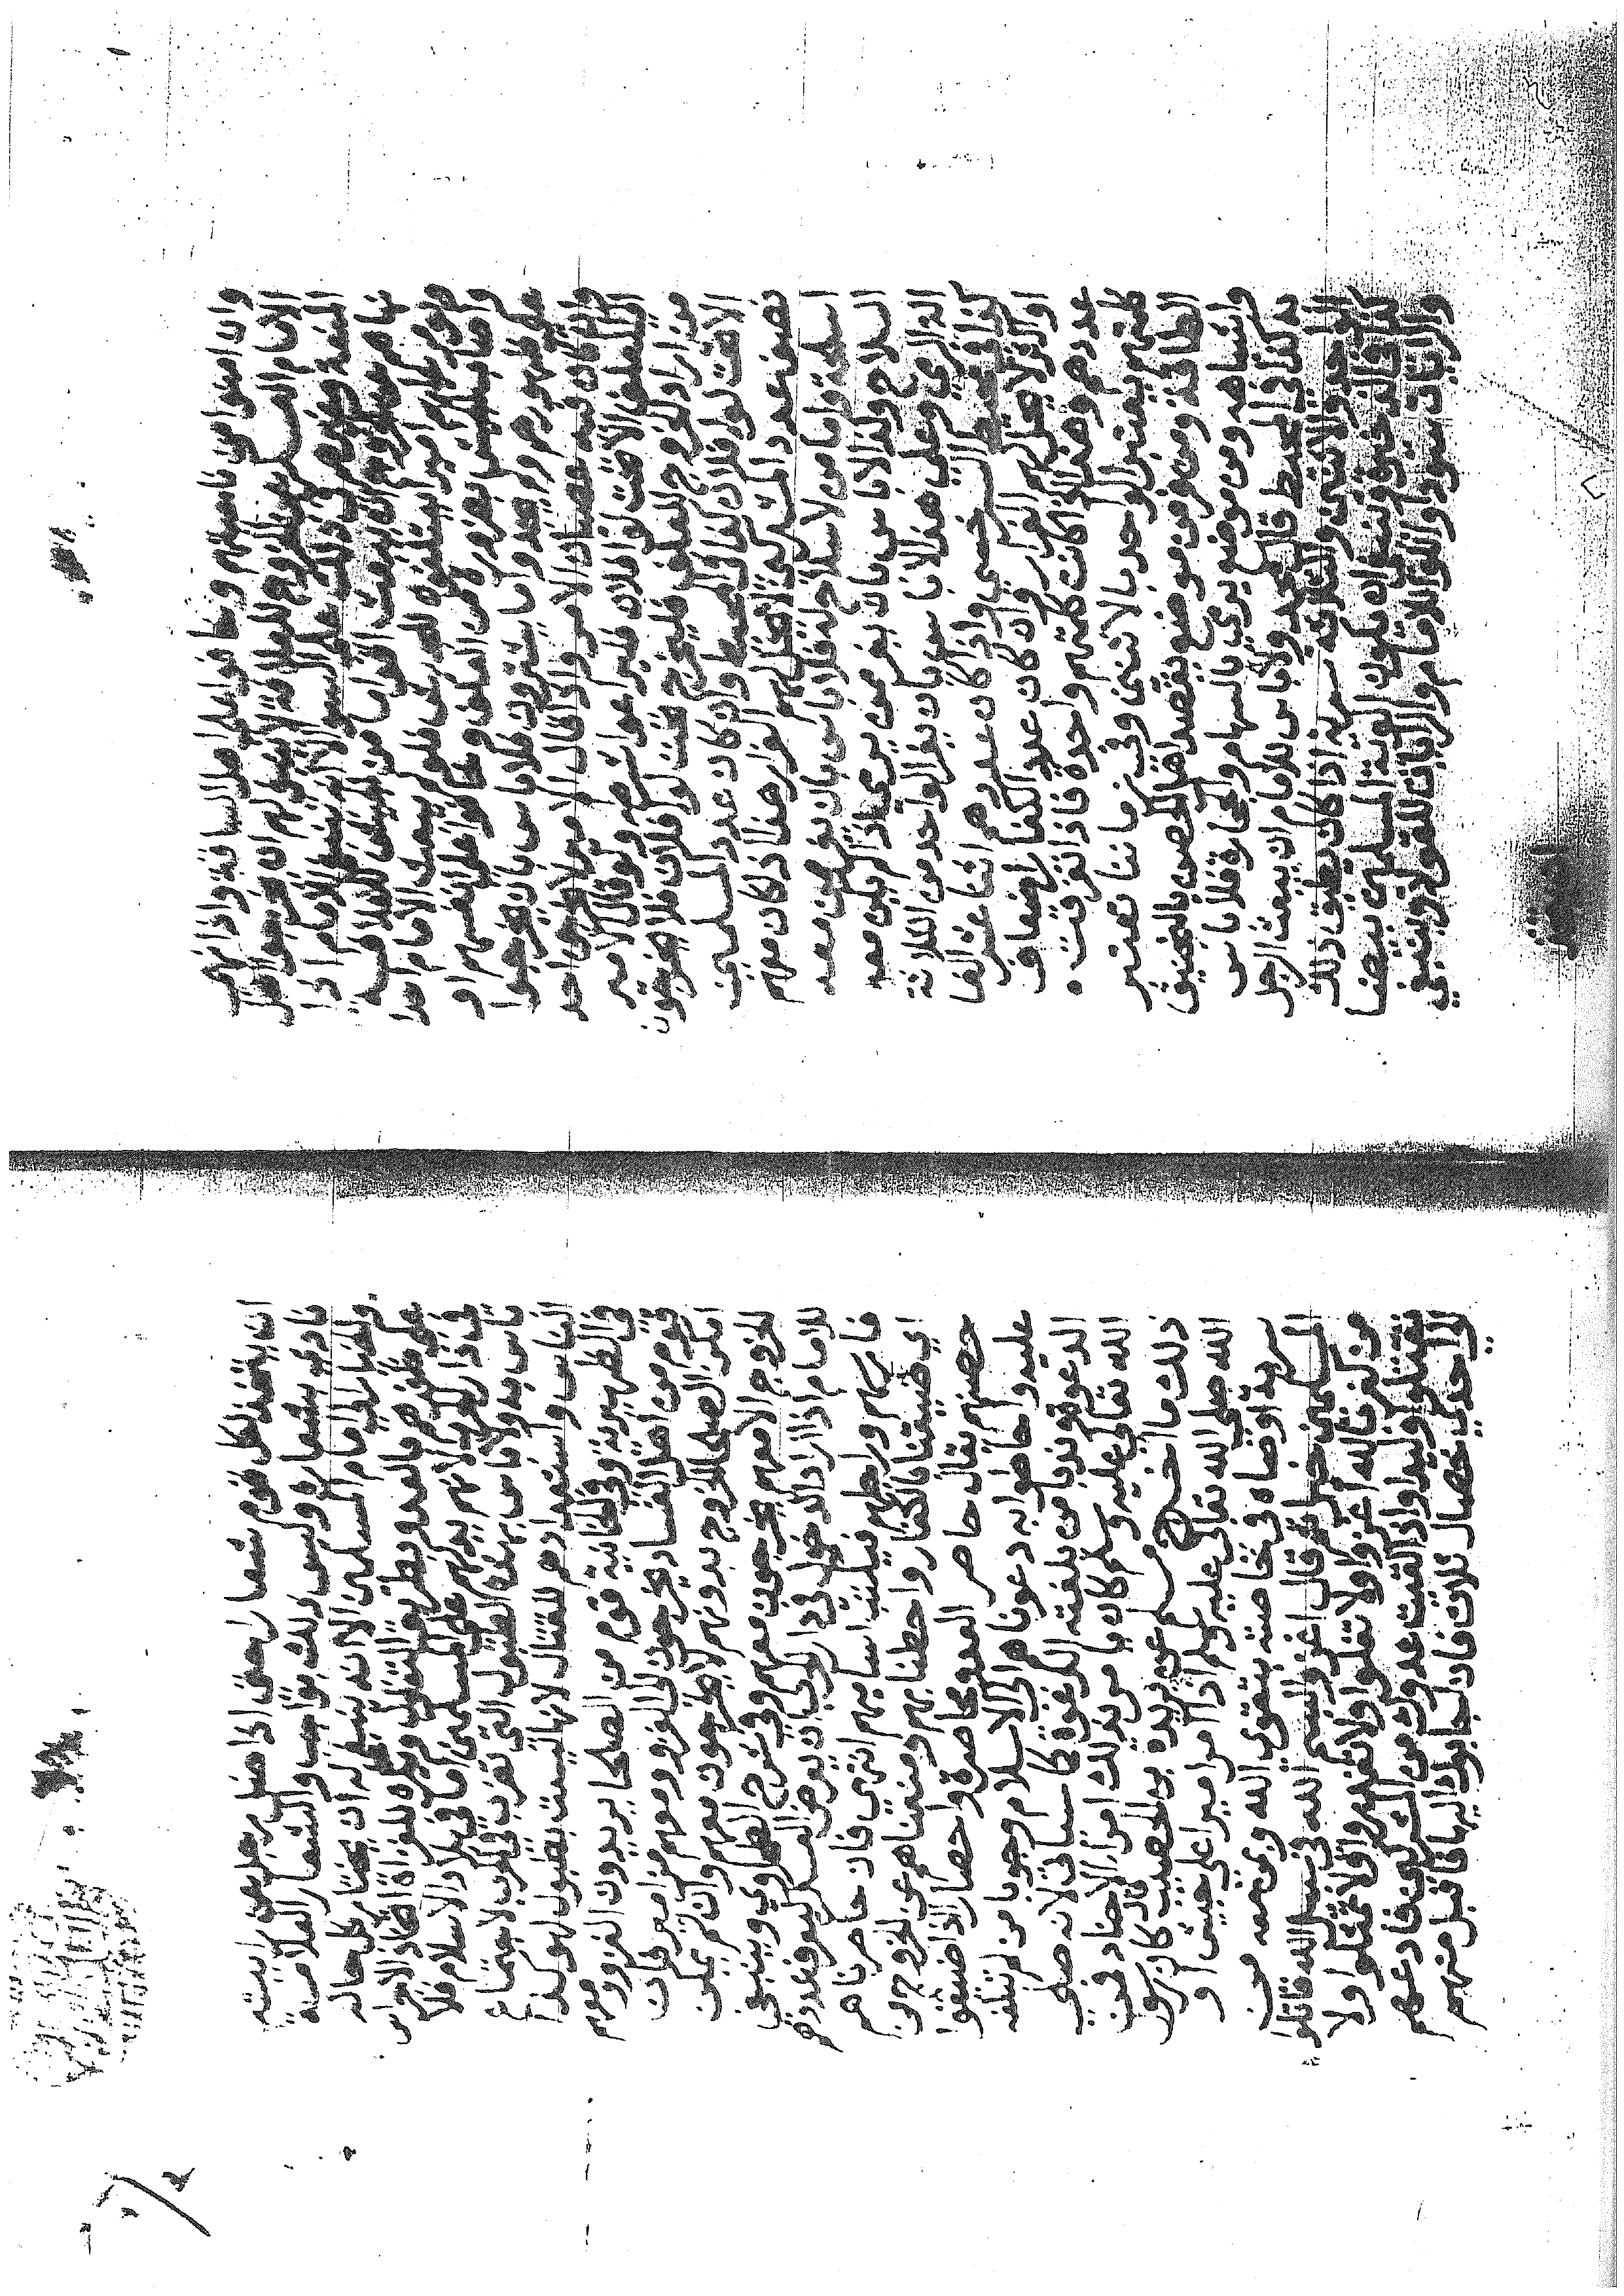 وان امنوا من ناسهم وخافوا على المسافة واذا نهى
الامام الناس عن الخروج للعلافة لا ينبغي لهم ان يخرجوا اهل
المنعة وغيرهم في ذلك على السوا الا انه ينبغي للامام اذا
نهاهم عن الخروج ان يبعث اقواما من الجيش للعلافة
ويؤمر عليهم اميرا فلو لم يبعث الامام احدا
واصاب الجيش ضرورة من العلف وخافوا على انفسهم او
على ظهورهم ولم يجدوا ما يشترون فلا باس بان يخرجوا
وان كان فيه عصيان الامر واذا قال الامير لا يخرجن احد
الى العلف الا تحت لوا فلان فيراعوا شرطه ولو قال الامير
من اراد الخروج للعلف فليخرج تحت لوا فلان فلا يخرجون
الا تحت لوا فلان كذا في المحيط وان كان عدد المسلمين
نصف عدد المشركين لا يحل لهم الفرار هذا اذا كان معهم
اسلحة واما من لا سلاح له فلا باس بان يفر ممن معه
السلاح وكذا لا باس بان يفر ممن يرمي اذا لم يكن معه
الة الرمي وعلى هذا لا باس بان يفر الواحد من الثلاثة
كذا في محيط السرخسي واذا كان عددهم اثنا عشر الفا
او اكثر لا يحل لهم الفرار وان كان عدد الكفار اضعاف
عددهم وهذا اذا كانت كلمتهم واحدة فاذا تفرقت
كلمتهم يعتبر الواحد بالاثنين وفي زماننا تعتبر
الطاقة ومن فر من موضع يقصده اهل الحصن بالمنجنيق
واشباهه ومن موضع يرمي بالسهام والحجارة فلا باس
به كذا في المحيط قال محمد ولا باس للامام ان يبعث الرجل
الواحد والاثنين والثلاثة سرية اذا كان يطيق ذلك
كذا في الذخيرة وينبغي ان يكون الوية المسلمين بيضا
والرايات سودا واللوا للامام والرايات للقواد وينبغي
ان يتخذ لكل قوم شعارا حتى اذا ضل رجل عن رايته
نادى بشعاره وليس ذلك بواجب والشعار العلامة
والخيار الى امام المسلمين الا انه ينبغي له ان يختار كل حاله
على ظفرهم بالعدو بطريق التفاول ويكره للغزاة اتخاذ الاجراس
في دار الحرب لانهم على المسلمين اما في بلاد الاسلام فلا
باس به ولا باس بهذه الطبول التي تضرب في الحرب لاجتماع
الناس واستعدادهم للقتال لانها ليست بطبول لهو كذا
في الظهيرية وفي الخانية قوم من الصلحا يريدون الغزو ومعهم
قوم من اهل الفساد يخرجون الى الغزو ومعهم مزامير فان
امكن الصلحا الخروج بدونهم لا يخرجون معهم وان لم يمكن
الخروج الا معهم يخرجون معهم وفي شرح الطحاوي وينبغي
للامام اذا اراد الدخول في دار الحرب ان يعرض العسكر ليعرف عددهم
فارسهم وراجلهم فيكتب اساميهم انتهى فان حاصرناهم
اي ضيقنا بالكفار واحطنا بهم ومنعناهم عن الخروج من
حصنهم يقال حاصر العدو محاصرة وحصارا اذا ضيقوا
عليه واحاطوا به دعوناهم الى الاسلام وجوبا من لم تبلغه
الدعوة وندبا من بلغته الدعوة كما سياتي لانه صلى
الله تعالى عليه وسلم كان يامر بذلك امرا الاجناد فمن
ذلك ما اخرجه مسلم عن بريدة بن الحصيب قال كان رسول
الله صلى الله تعالى عليه وسلم اذا امر اميرا على جيش او
سرية اوصاه في خاصته بتقوى الله ومن معه من
المسلمين خيرا ثم قال اغزوا بسم الله في سبيل الله قاتلوا
من كفر بالله اغزوا ولا تغلوا ولا تغدروا ولا تمثلوا ولا
تقتلوا وليدا واذا لقيت عدوك من المشركين فادعهم
الى احدى خصال ثلاث فان اجابوك اليها فاقبل منهم